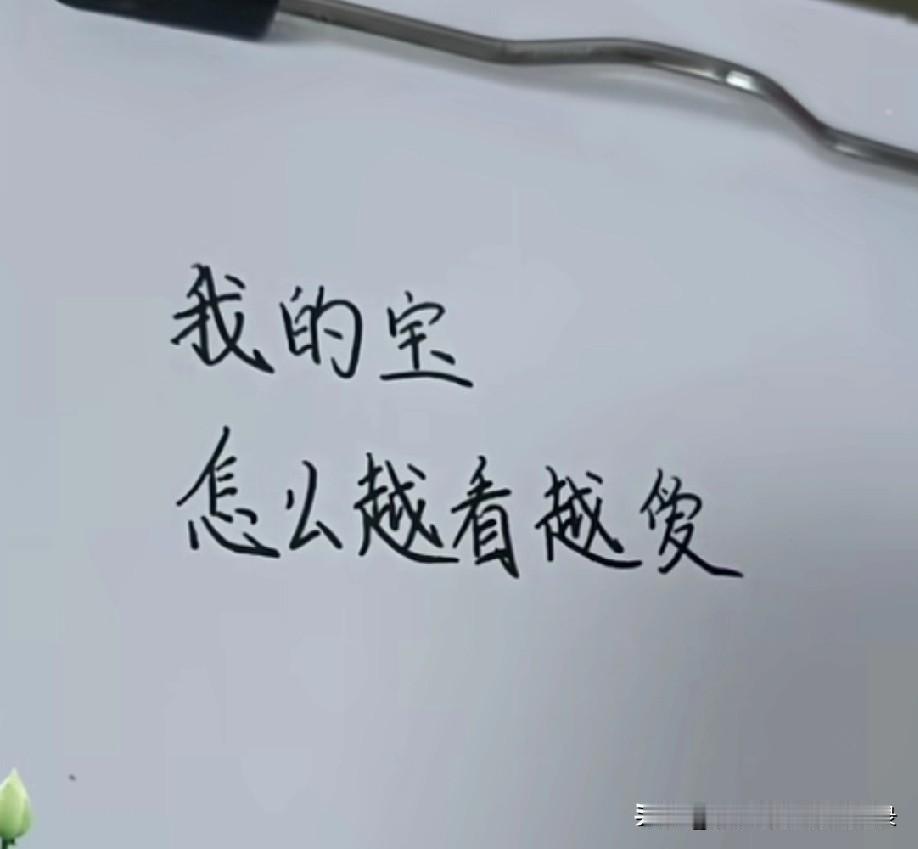 我的宝
怎么越看越爱